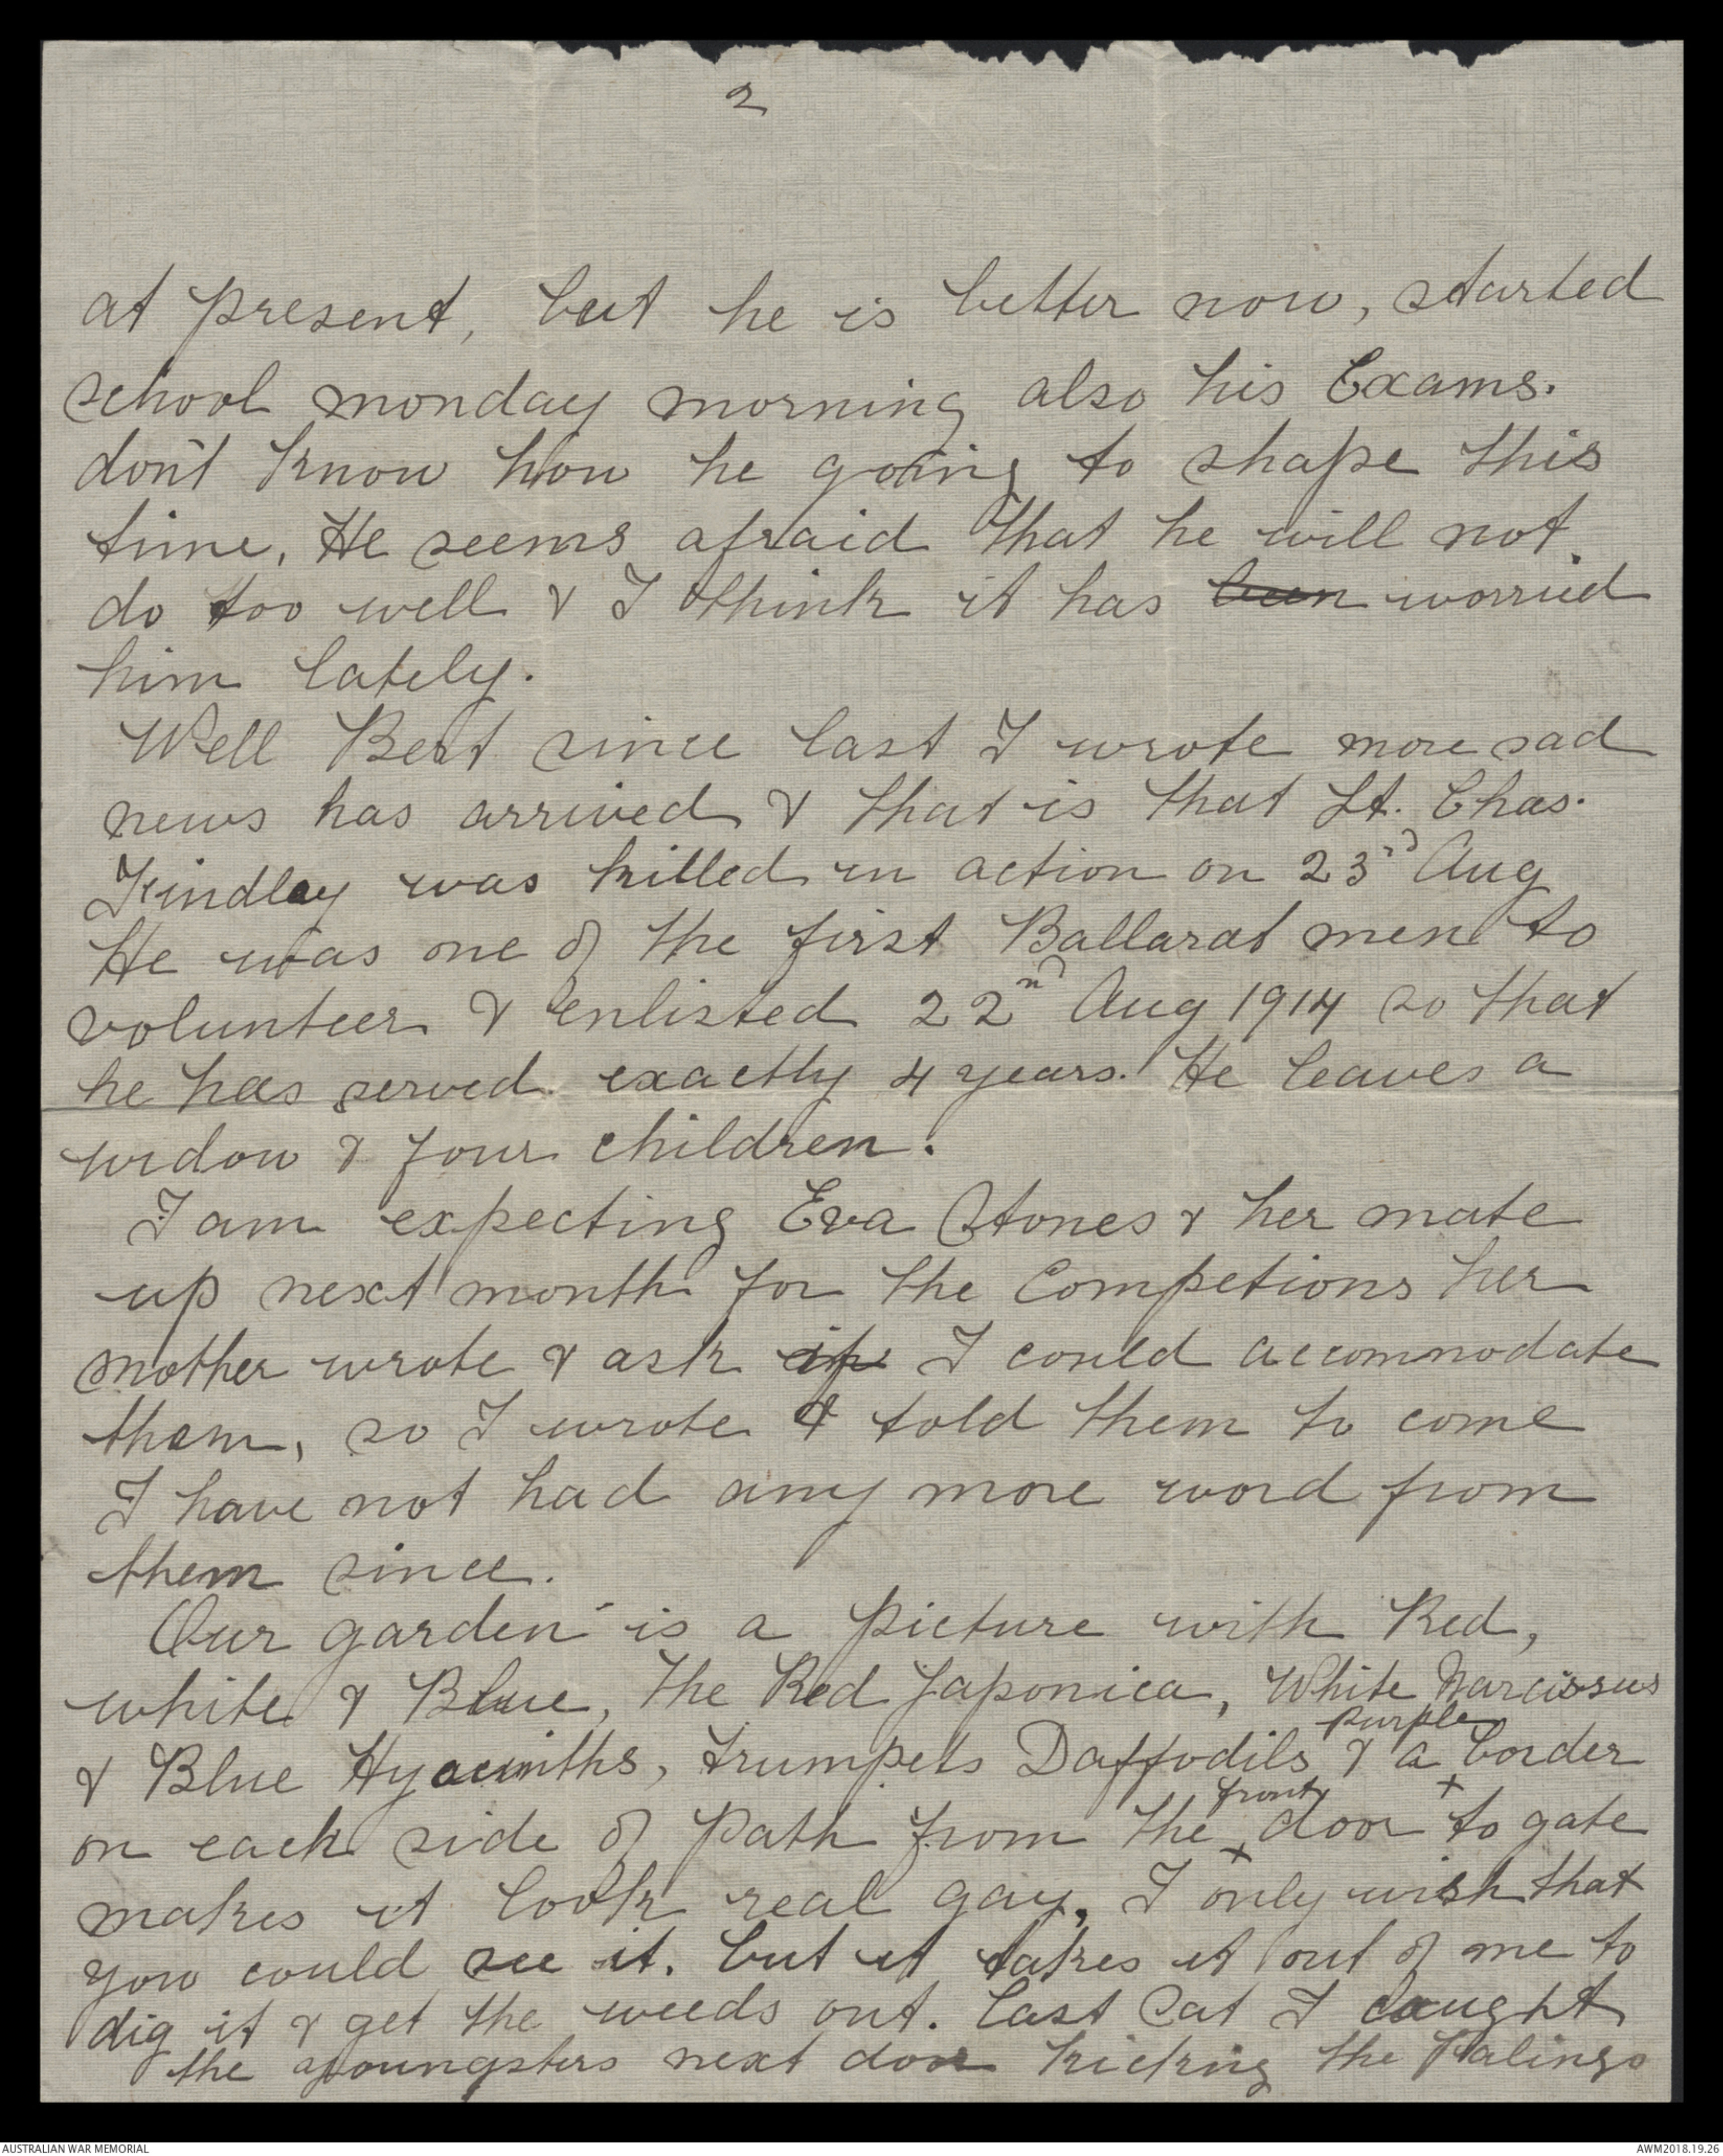 2
at present, but he is better now, started
school monday morning also his Exams.
don't know how he going to shape this
time, He seems afraid that he will not.
do too well & I think it has been worried
him lately.
Well Bert since last I wrote more sad
news has arrived & that is that Lt. Chas.
Findlay was killed in action on 23rd Aug
He was one of the first Ballarat men to
volunteer & enlisted 22nd Aug 1914 so that
he has served exactly 4 years. He leaves a
widow & four children.
I am expecting Eva Stones & her mate
up next month for the Competions her
mother wrote & ask if I could accommodate
them, so I wrote & told them to come
I have not had any more word from
them since.
Our garden is a picture with Red,
white & Blue, The Red Japonica, White Narcissus
purple
& Blue Hyacinths, trumpets Daffodils & a border
front x
on each side of Path from the x door to gate
makes it look real gay, I only wish that
you could see it. but it takes it out of me to
dig it & get the weeds out. last Sat I caught
the youngsters next door kicking the Palings
AUSTRALIAN WAR MEMORIAL
AWM2018.19.26